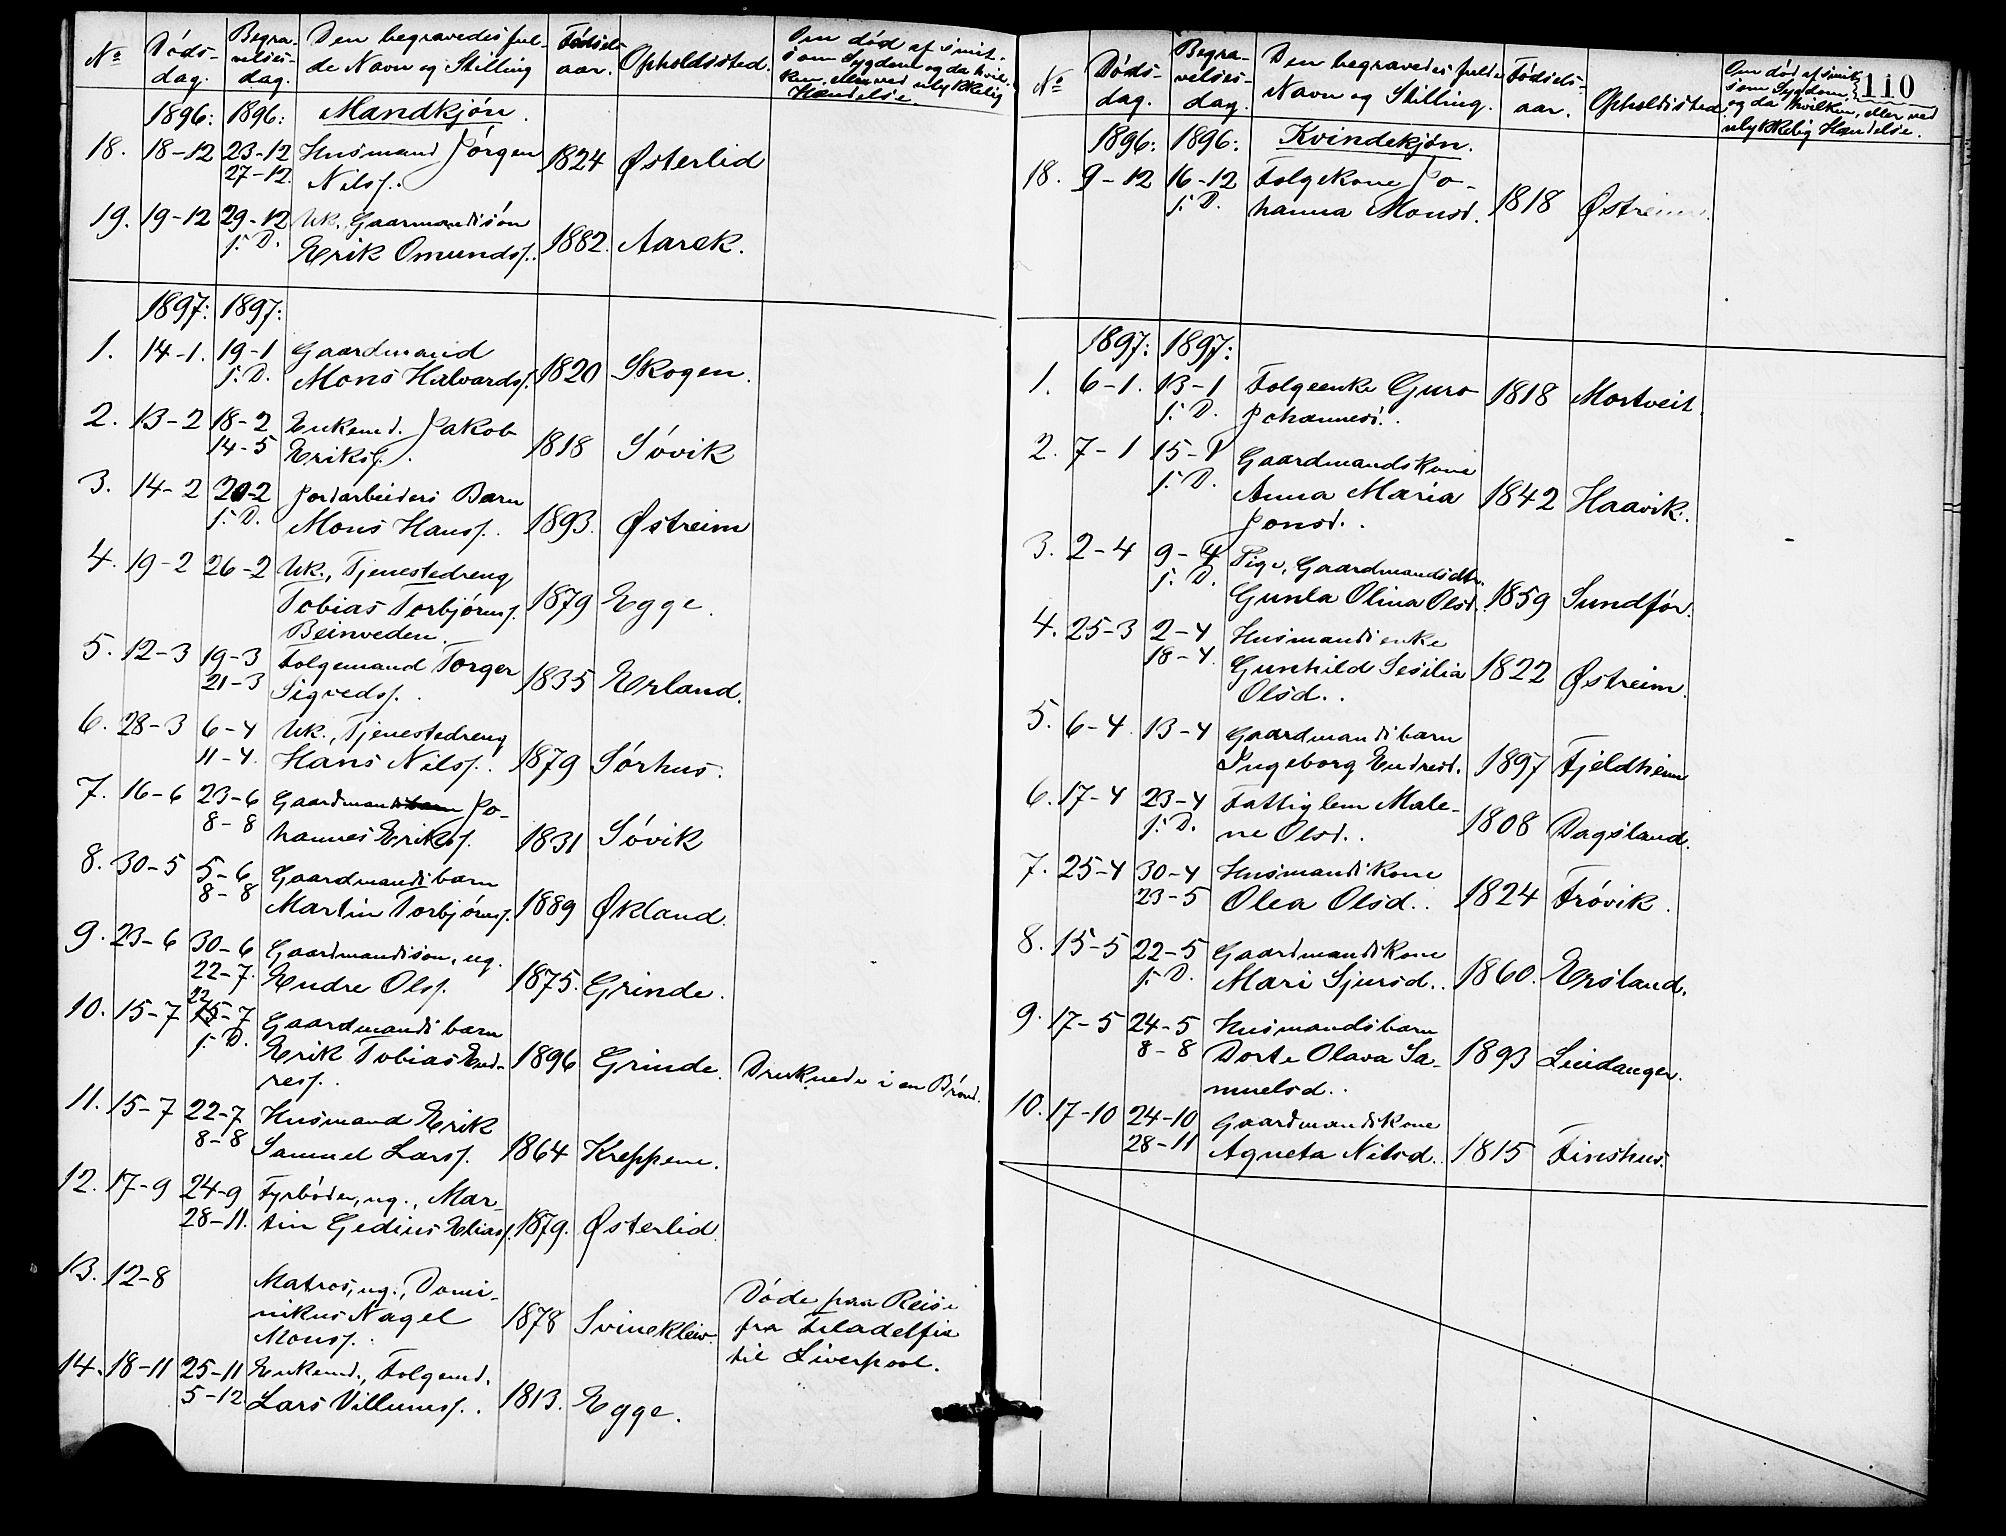 No
Døds-
dag.
Begra-
velses-
dag.
Den begravedes ful-
de Navn og Stilling
Fødsels-
aar.
Opholdssted.
Om død af smit-
som Sygdom og da hvil-
ken, eller ved ulykkelig
Hændelse
1896: 1896: Mandkjøn.
18. 18-12 23-12 Husmand Jørgen 1824 Østerlid
27-12. Nilss.
19. 19-12 29-12 Uk. Gaarmandssøn
s. D. Erik Omundss. 1882. Aarek.
1897: 1897:
1. 14-1. 19-1 Gaardmand
s. D. Mons Halvardss. 1820 Skogen.
2. 13-2 18-2 Enkemd. Jakob
14-5 Erikss. 1818 Søvik
3. 14-2 20-2 Jordarbeiders Barn
s. D. Mons Hanss. 1893. Østreim
4. 19-2 26-2 Uk., Tjenestedreng
Tobias Torbjørnss. 1879 Egge.
Beinveden.
5. 12-3 19-3 Folgemand Torger
21-3 Sigvedss. 1835 Erland.
6. 28-3 6-4 Uk., Tjenestedreng
11-4. Hans Nilss. 1879 Sørhus.
7. 16-6 23-6 Gaardmandsbarn Jo-
8-8 hannes Erikss. 1831 Søvik
8. 30-5 5-6 Gaardmandsbarn
8-8 Martin Torbjørnss. 1889 Økland.
9. 23-6 30-6 Gaardmandssøn, ug.
22-7. Endre Olss. 1875. Grinde.
22
10. 15-7 15-7 Gaardmandsbarn
s. D. Erik Tobias End- 1896 Grinde. Druknede i en Brønd.
ress.
11. 15-7 22-7 Husmand Erik
8-8 Samuel Larss. 1864 Kreppene.
12. 17-9 24-9 Fyrbøder, ug., Mar-
28-11. tin Gedius Eliass. 1879. Østerlid
13. 12-8 Matros, ug., Domi-
nikus Nagel 1878 Svineklev.
Monss.
Døde paa Reise
fra Filadelfia
til Liverpool.
14. 18-11 25-11 Enkemd., Folgemd.
5-12 Lars Villumss. 1813. Egge.
No
Døds-
dag.
Begra-
velses-
dag.
Den begravedes fulde
Navn og Stilling.
Fødsels-
aar.
Opholdssted
Om død af smit-
som Sygdom
og da hvilken, eller ved
ulykkelig Hændelse.
110
1896: 1896: Kvindekjøn.
18. 9-12 16-12 Folgekone Jo-
s. D. hanna Monsd. 1818 Østreim.
1897: 1897:
1. 6-1. 13-1 Folgeenke Guro 1818 Mortveit.
s. D. Johannesd.
2. 7-1 15-1 Gaardmandskone
s. D. Anna Maria 1842 Haavik.
Jonsd.
3. 2-4 9-4 Pige, Gaardmandsdtr.
s. D. Gunla Olina Olsd. 1859 Sundfør.
4. 25-3 2-4 Husmandsenke
18-4. Gunhild Sesilia 1822 Østreim.
Olsd.
5. 6-4. 13-4 Gaardmandsbarn
Ingeborg Endresd. 1897 Fjeldheim
6. 17-4 23-4 Fattiglem Male-
s. D. ne Olsd. 1808 Dagsland.
7. 25-4 30-4 Husmandskone
23-5 Olea Olsd. 1824 Frøvik.
8. 15-5 22-5 Gaardmandskone
s. D. Mari Sjursd. 1860. Ersland.
9. 17-5 24-5 Husmandsbarn
8-8 Dorte Olava Sa- 1893 Leidanger.
muelsd.
10. 17-10 24-10 Gaardmandskone
28-11 Agneta Nilsd. 1815 Finshus.